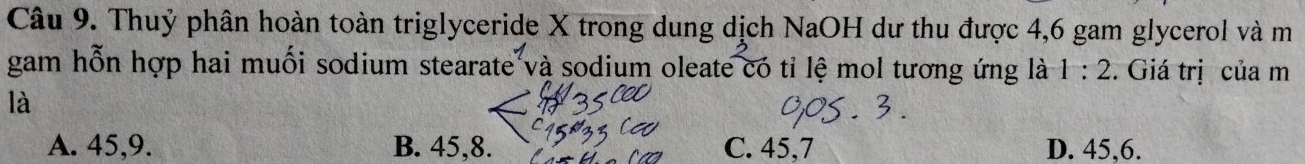 Câu 9. Thuỷ phân hoàn toàn triglyceride X trong dung dịch NaOH dư thu được 4,6 gam glycerol và m
1 2
gam hỗn hợp hai muối sodium stearate và sodium oleate có tỉ lệ mol tương ứng là 1 : 2. Giá trị của m
là
35 COO
0,05 . 3 .
C15H33 COO
A. 45,9. B. 45,8. C. 45,7 D. 45,6.